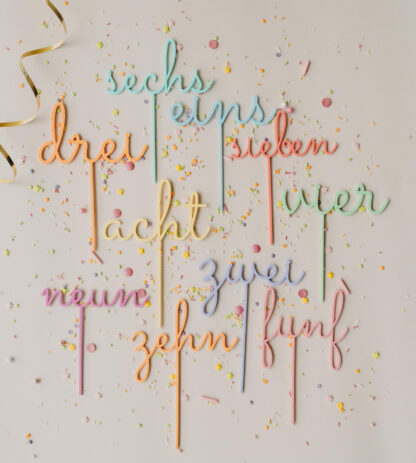 sechs
eins
drei
sieben
vier
acht
zwei
neun
zehn
fünf